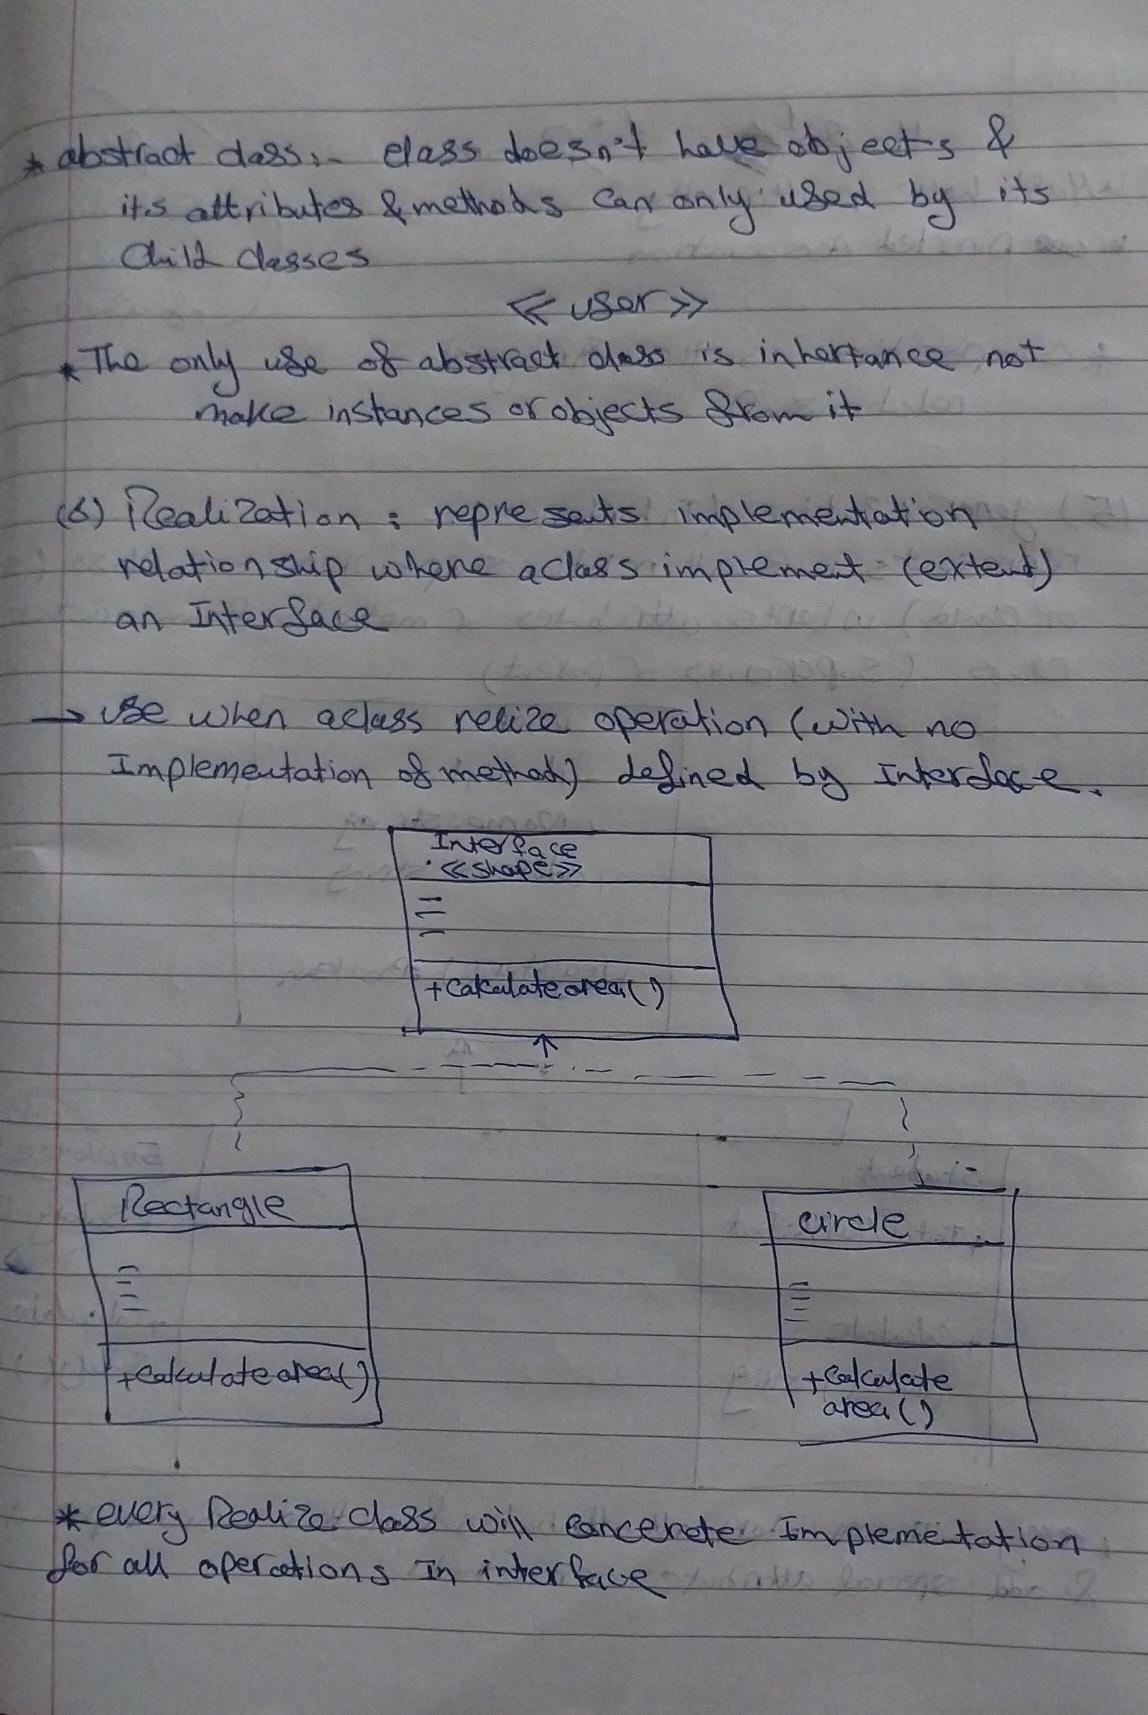 * abstract class:- class doesn't have objects &
its attributes & methods can only used by its
child classes
<< user >>
* The only use of abstract class is inhertance not
make instances or objects from it
(6) Realization : represents implementation
relationship where a class implement (extent)
an Interface
→ use when a class relize operation (with no
Implementation of method) defined by Interface.
Interface
<<shape>>
+calculate area()
Rectangle
circle
+calculate area()
+calculate
area()
* every Realize class will concerete Implementation
for all operations In interface